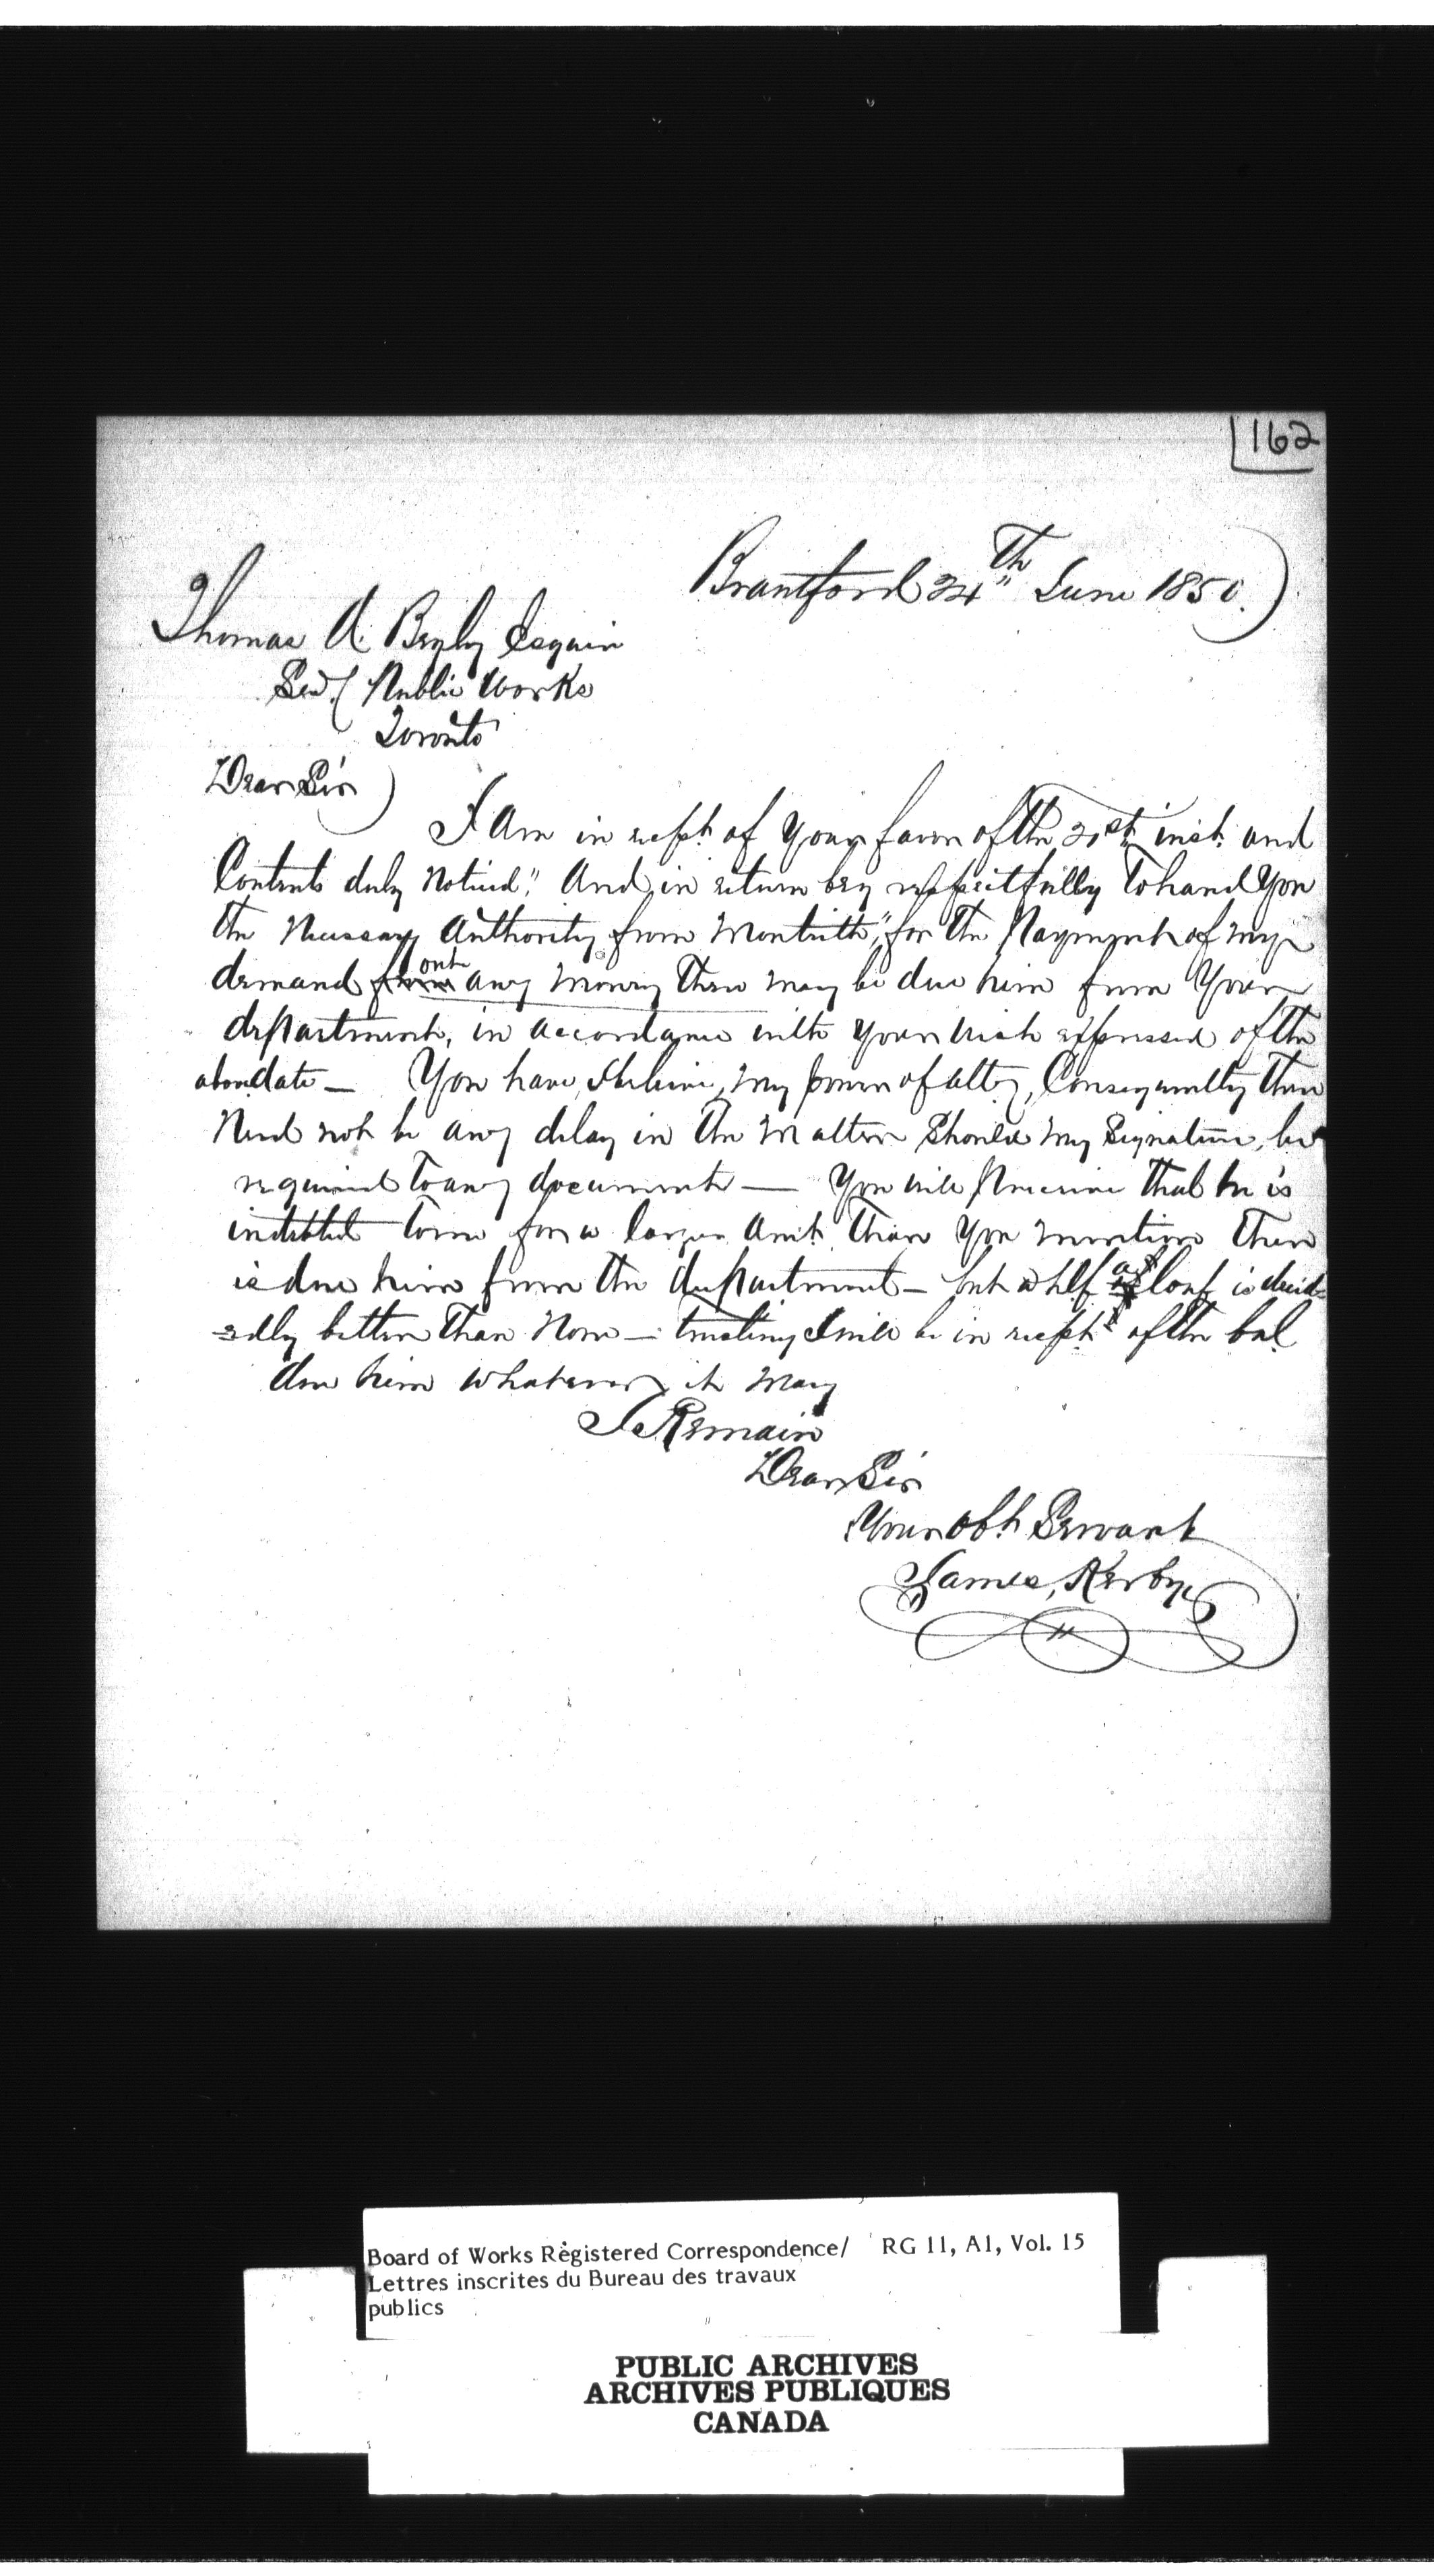 162
Brantford 24th June 1850.
Thomas A. Begly Esquire
Secy. Public Works
Toronto
Dear Sir
I Am in recpt. of your favor of the 21st. inst. and
Contents duly Noticed," And in return beg respectfully to hand you
the Necessary Authority from Montieth," for the Payment of my
demand from out any money there may be due him from Your
department, in accordance with your wish expressed of the
above date — You have, I believe, my power of atty, Consequently there
Need not be any delay in the matter Should my Signature, be
required to any document — You will perceive that he is
indebted to me for a larger amt. than you mention there
is due him from the department — but a half a loaf is decid=
=edly better than None — trusting I will be in recpt. of the bal
due him whatever it may
I Remain
Dear Sir
Your obt Servant
James, Kerby
Board of Works Registered Correspondence/ RG 11, A1, Vol. 15
Lettres inscrites du Bureau des travaux
publics
PUBLIC ARCHIVES
ARCHIVES PUBLIQUES
CANADA